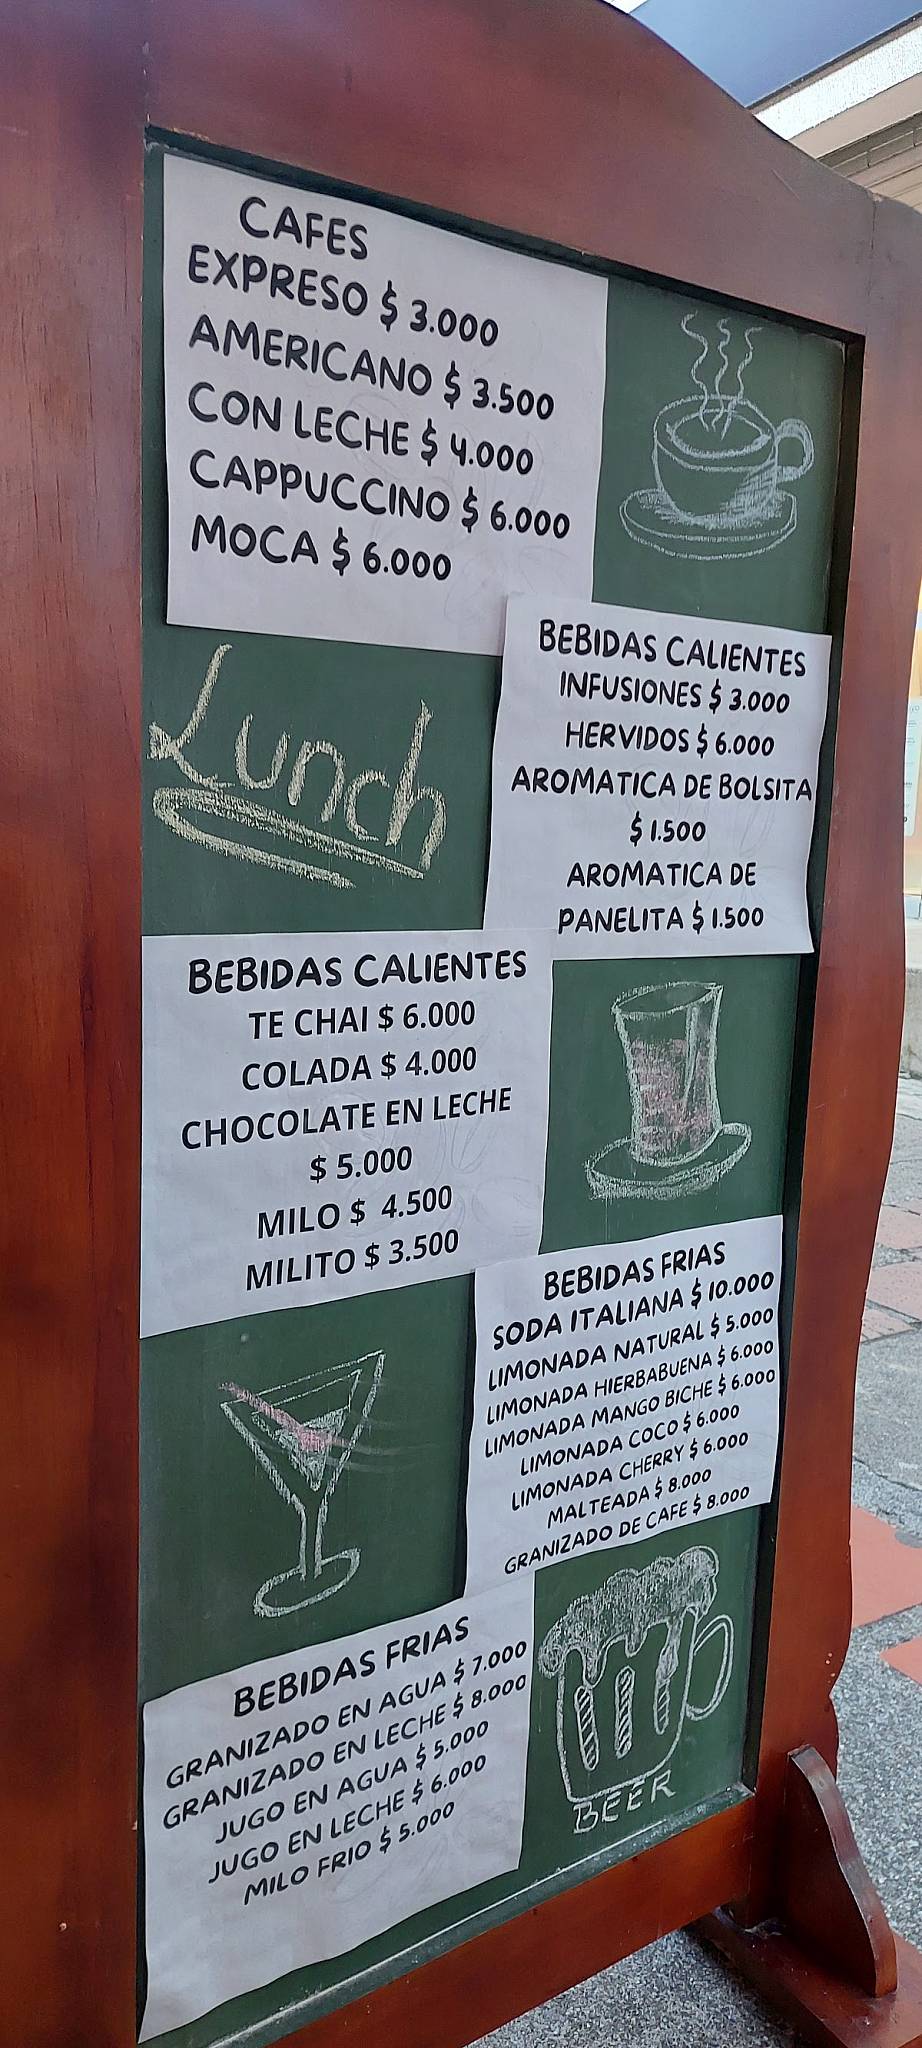 CAFES
EXPRESO $ 3.000
AMERICANO $ 3.500
CON LECHE $ 4.000
CAPPUCCINO $ 6.000
MOCA $ 6.000
BEBIDAS CALIENTES
INFUSIONES $ 3.000
HERVIDOS $ 6.000
AROMATICA DE BOLSITA
$ 1.500
AROMATICA DE
PANELITA $ 1.500
Lunch
BEBIDAS CALIENTES
TE CHAI $ 6.000
COLADA $ 4.000
CHOCOLATE EN LECHE
$ 5.000
MILO $ 4.500
MILITO $ 3.500
BEBIDAS FRIAS
SODA ITALIANA $ 10.000
LIMONADA NATURAL $ 5.000
LIMONADA HIERBABUENA $ 6.000
LIMONADA MANGO BICHE $ 6.000
LIMONADA COCO $ 6.000
LIMONADA CHERRY $ 6.000
MALTEADA $ 8.000
GRANIZADO DE CAFE $ 8.000
BEBIDAS FRIAS
GRANIZADO EN AGUA $ 7.000
GRANIZADO EN LECHE $ 8.000
JUGO EN AGUA $ 5.000
JUGO EN LECHE $ 6.000
MILO FRIO $ 5.000
BEER